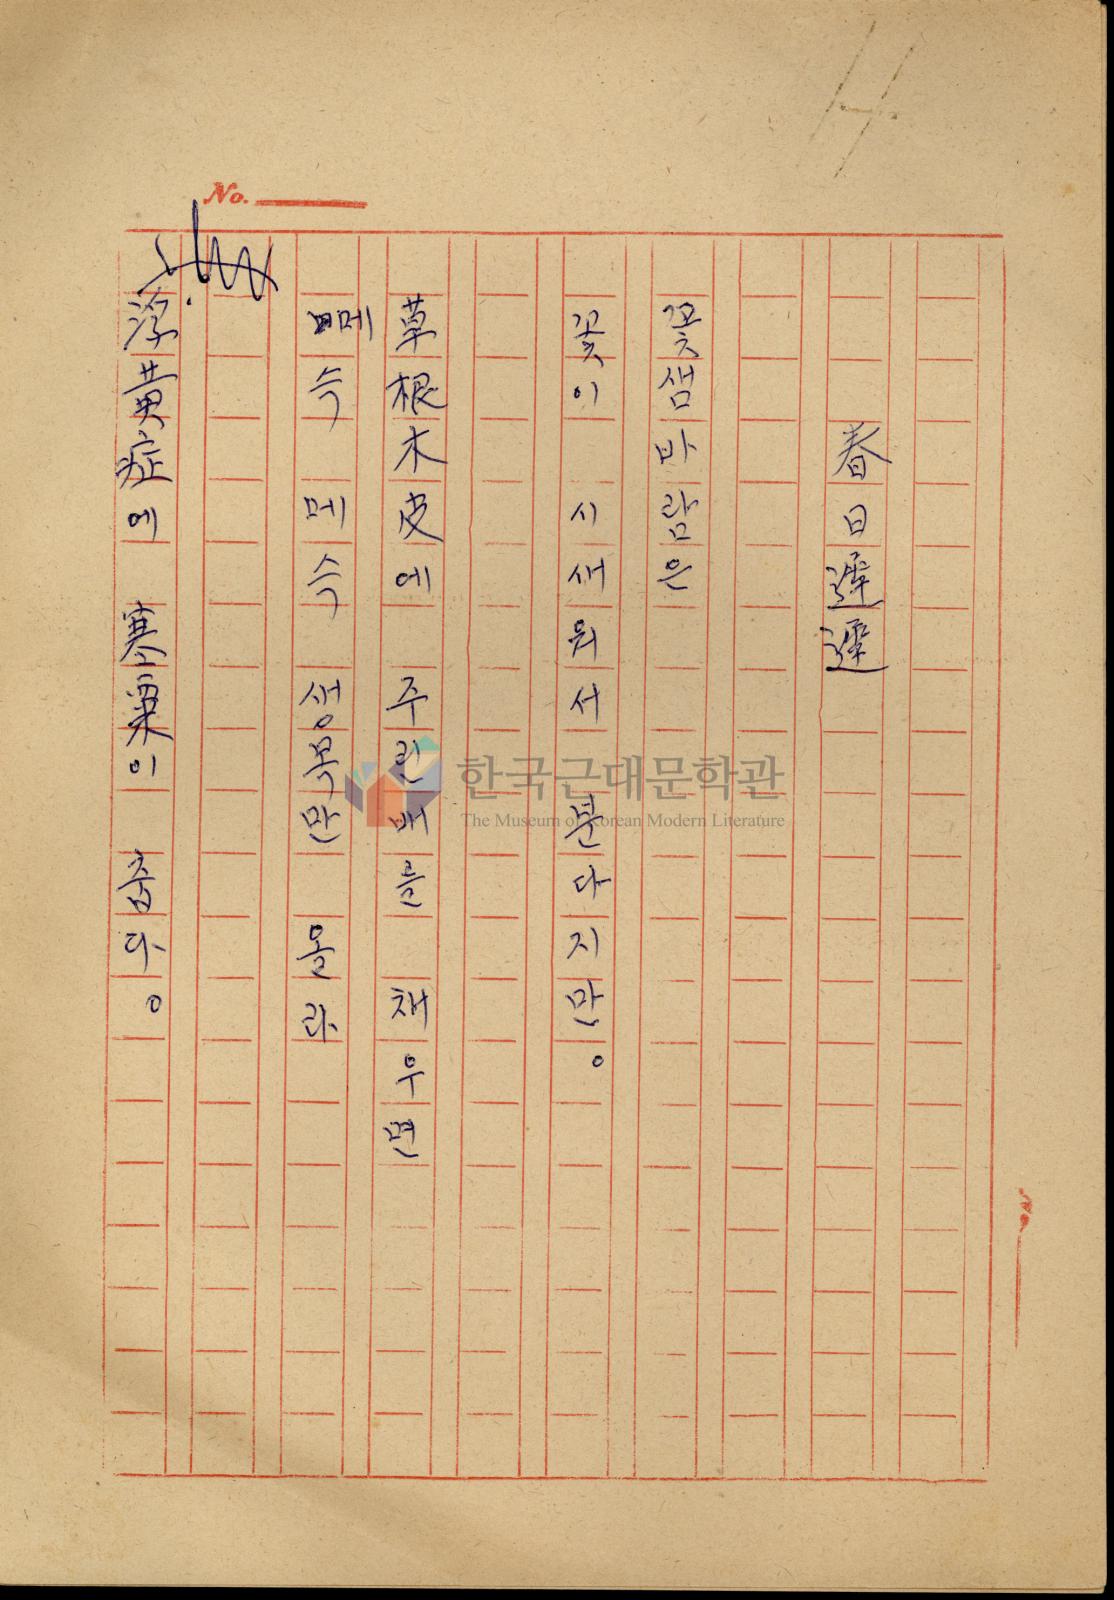 No.
春日遲遲
꽃샘바람은
꽃이 시새워서 분다지만。
草根木皮에 주린배를 채우면
메슥 메슥 생목만 올라
浮黃症에 寒粟이 춥다。
한국근대문학관
The Museum of Korean Modern Literature